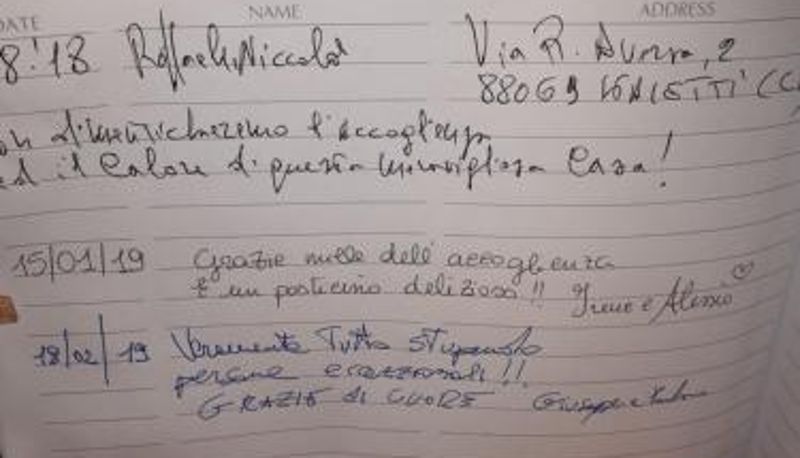 DATE NAME ADDRESS
8.'18 Raffaele Niccolò Via R. 2
88069 (C
on dimenticheremo l'accoglienza
ed il Calore di questa meravigliosa Casa!
15/01/19 Grazie mille dell' accoglienza
È un posticino delizioso!! Irene e Alessio
18/02/19 Veramente Tutto stupendo
persone eccezionali!!
GRAZIE di CUORE Giuseppe e